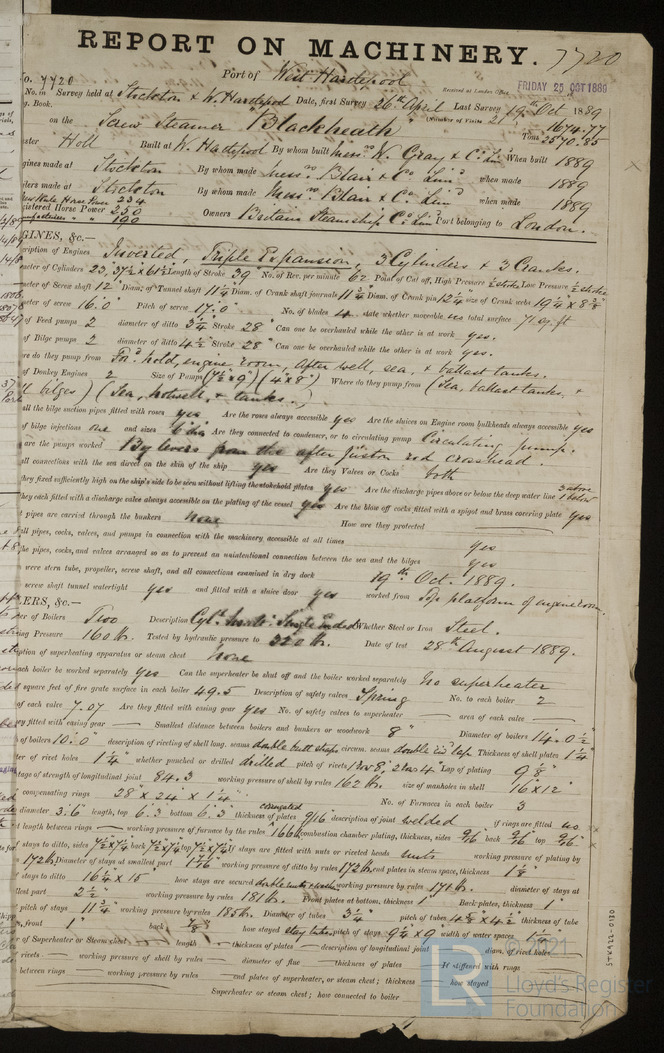 REPORT ON MACHINERY. 7720
Port of West Hartlepool
Received at London Office FRIDAY 25 OCT 1889
No. 7720
No. in Survey held at Stockton & W. Hartlepool Date, first Survey 26th April Last Survey 19th Oct 1889
g. Book. (Number of Visits 21
on the Screw Steamer "Blackheath" Tons 1674.77
2570.85
ster Holl Built at W. Hartlepool By whom built Messrs W. Gray & Co Limd When built 1889
gines made at Stockton By whom made Messrs Blair & Co Limd when made 1889
lers made at Stockton By whom made Messrs Blair & Co Limd when made 1889
gistered Horse Power 230 Owners Britain Steamship Co Lim Port belonging to London.
190
GINES, &c.—
cription of Engines Inverted, Triple Expansion, 3 Cylinders & 3 Cranks.
meter of Cylinders 23, 37½ & 61½ Length of Stroke 39 No. of Rev. per minute 62 Point of Cut off, High Pressure ½ stroke Low Pressure ½ stroke
meter of Screw shaft 12" Diam. of Tunnel shaft 11¼ Diam. of Crank shaft journals 11¾ Diam. of Crank pin 12¼ size of Crank webs 19¼ x 8⅜"
meter of screw 16.0" Pitch of screw 17.0" No. of blades 4 state whether moveable no total surface 71 sq. ft
of Feed pumps 2 diameter of ditto 3¼ Stroke 28" Can one be overhauled while the other is at work yes.
of Bilge pumps 2 diameter of ditto 4½ Stroke 28" Can one be overhauled while the other is at work yes.
ere do they pump from Ford hold, engine room, after well, sea, & ballast tanks.
of Donkey Engines 2 Size of Pumps (7½ x 9") (4 x 8") Where do they pump from (Sea, ballast tanks, &
bilges) (Sea, hotwell, & tanks.)
all the bilge suction pipes fitted with roses yes Are the roses always accessible yes Are the sluices on Engine room bulkheads always accessible yes
of bilge injections one and sizes 6" dia Are they connected to condenser, or to circulating pump Circulating pump.
are the pumps worked By levers from the after piston rod crosshead.
all connections with the sea direct on the skin of the ship yes Are they Valves or Cocks both
they fixed sufficiently high on the ship's side to be seen without lifting the stokehold plates yes Are the discharge pipes above or below the deep water line 3 above 1 below
they each fitted with a discharge valve always accessible on the plating of the vessel yes Are the blow off cocks fitted with a spigot and brass covering plate yes
t pipes are carried through the bunkers none How are they protected
all pipes, cocks, valves, and pumps in connection with the machinery accessible at all times yes
the pipes, cocks, and valves arranged so as to prevent an unintentional connection between the sea and the bilges yes
were stern tube, propeller, screw shaft, and all connections examined in dry dock 19th Oct. 1889.
screw shaft tunnel watertight yes and fitted with a sluice door yes worked from Top platform of engine room.
LERS, &c.—
ber of Boilers Two Description Cyl. Multi. Single Ended Whether Steel or Iron Steel.
king Pressure 160 lb. Tested by hydraulic pressure to 320 lb. Date of test 28th August 1889.
iption of superheating apparatus or steam chest none
each boiler be worked separately yes Can the superheater be shut off and the boiler worked separately no superheater
square feet of fire grate surface in each boiler 49.5 Description of safety valves Spring No. to each boiler 2
of each valve 7.07 Are they fitted with easing gear yes No. of safety valves to superheater — area of each valve —
ey fitted with easing gear — Smallest distance between boilers and bunkers or woodwork 8" Diameter of boilers 14.0½"
h of boilers 10.0" description of riveting of shell long. seams double butt straps circum. seams double riv lap Thickness of shell plates 1¼"
ter of rivet holes 1¼" whether punched or drilled drilled pitch of rivets 1 row 8", 2 rows 4" Lap of plating 9⅛"
tage of strength of longitudinal joint 84.3 working pressure of shell by rules 162 lb. size of manholes in shell 16" x 12"
compensating rings 28" x 24" x 1¼" No. of Furnaces in each boiler 3
diameter 3.6" length, top 6.3 bottom 6.3 corrugated thickness of plates 9/16 description of joint welded if rings are fitted no
t length between rings — working pressure of furnace by the rules 166 lb combustion chamber plating, thickness, sides 9/16 back 9/16 top 9/16
of stays to ditto, sides 7½ x 7¼ back 7½ x 7¼ top 7½ x 7½ If stays are fitted with nuts or riveted heads nuts working pressure of plating by
172 lb. Diameter of stays at smallest part 1 7/16 working pressure of ditto by rules 172 lb. end plates in steam space, thickness 1⅛"
of stays to ditto 16¼ x 15" how stays are secured double nuts & washers working pressure by rules 171 lb. diameter of stays at
llest part 2½" working pressure by rules 181 lb. Front plates at bottom, thickness 1" Back plates, thickness 1"
pitch of stays 11¾" working pressure by rules 185 lb. Diameter of tubes 3¼" pitch of tubes 4⅝" x 4½" thickness of tube
s, front 1" back ⅞" how stayed stay tubes pitch of stays 9¼ x 9" width of water spaces
of Superheater or Steam chest — length — thickness of plates — description of longitudinal joint — diam. of rivet holes
rivets — working pressure of shell by rules — diameter of flue — thickness of plates — If stiffened with rings
between rings — working pressure by rules — end plates of superheater, or steam chest; thickness — how stayed
Superheater or steam chest; how connected to boiler
STK422-0130
LR
© 2021
Lloyd's Register
Foundation